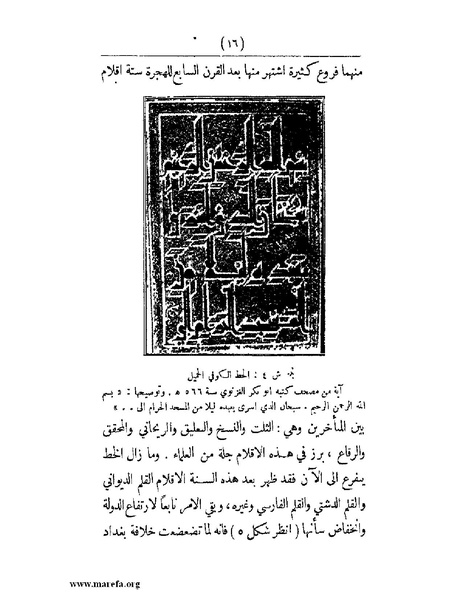 ( ١٦ )
منهما فروع كثيرة اشتهر منها بعد القرن السابع للهجرة ستة اقلام
ش ٤ : الخط الكوفي الجميل
آية من مصحف كتبه ابو بكر الغزنوي سنة ٥٦٦ ه . وتوضيحها : « بسم
الله الرحمن الرحيم . سبحان الذي اسرى بعبده ليلا من المسجد الحرام الى .. »
بين المتأخرين وهي : الثلث والنسخ والتعليق والريحاني والمحقق
والرقاع ، برز في هذه الاقلام جلة من العلماء . وما زال الخط
يتفرع الى الآن فقد ظهر بعد هذه الستة الاقلام القلم الديواني
والقلم الدشتي والقلم الفارسي وغيره ، وبقي الامر تابعاً لارتفاع الدولة
وانخفاض شأنها ( انظر شكل ٥ ) فانه لما تضعضعت خلافة بغداد
www.marefa.org